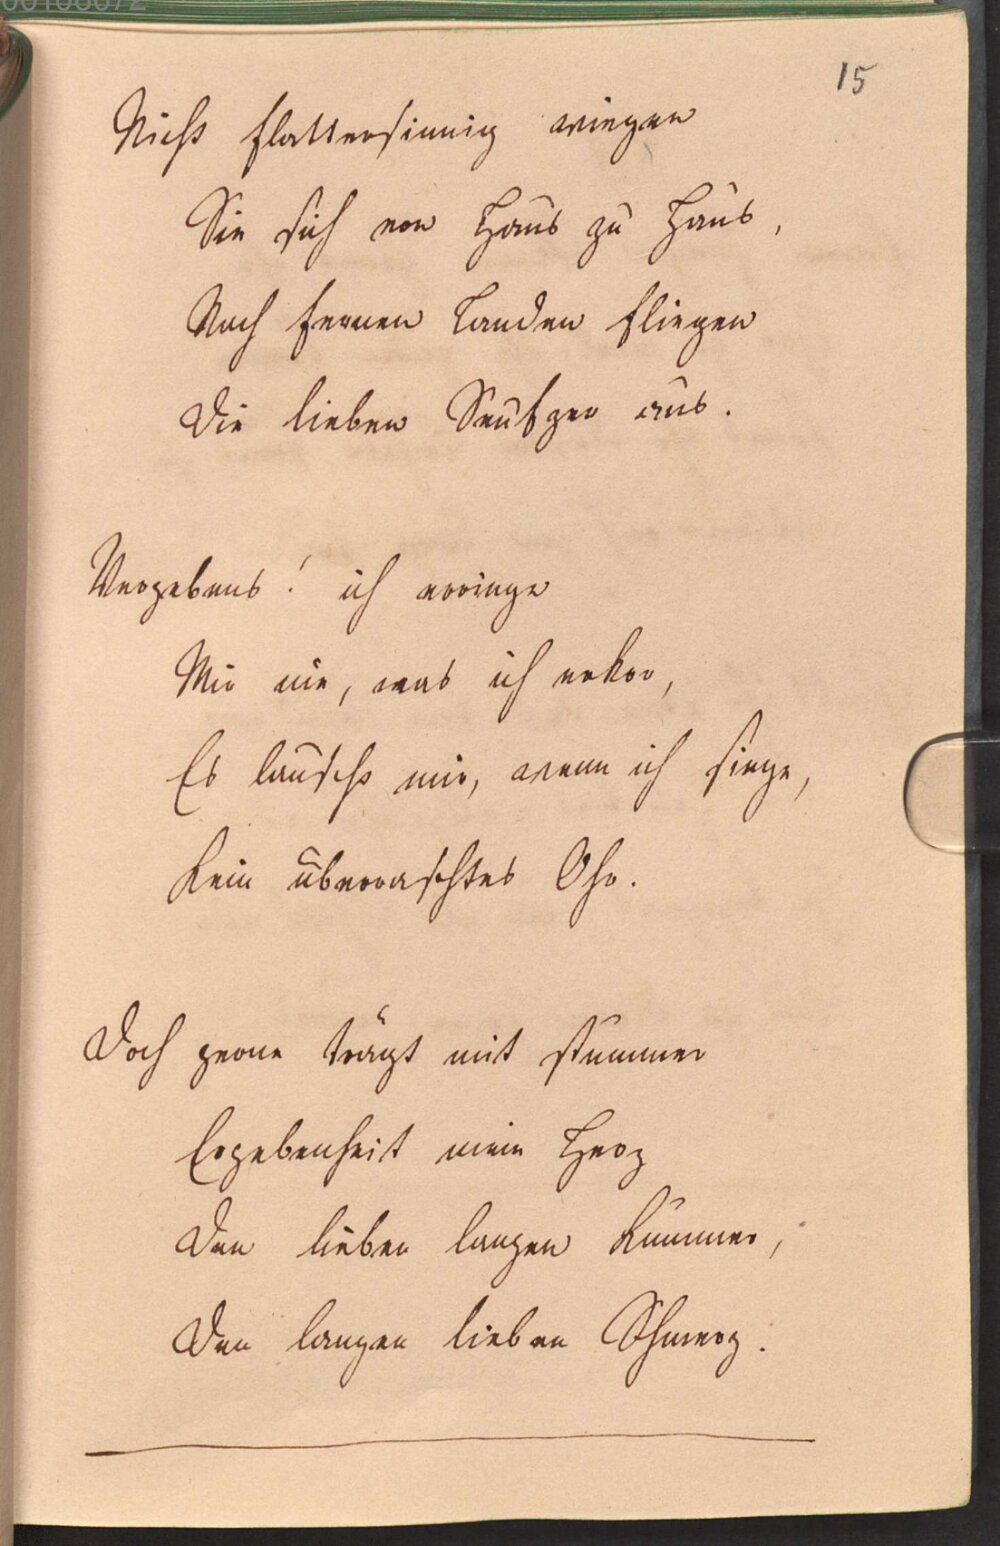 00106072
15
Nicht flattersinnig wiegen
Sie sich von Haus zu Haus,
Nach fernen Landen fliegen
Die lieben Seufzer aus.
Vergebens! ich erringe
Mir nie, was ich erkor,
Es lauscht mir, wenn ich singe,
Kein überraschtes Ohr.
Doch gerne trägt mit stummer
Ergebenheit mein Herz
Den lieben langen Kummer,
Den langen lieben Schmerz.